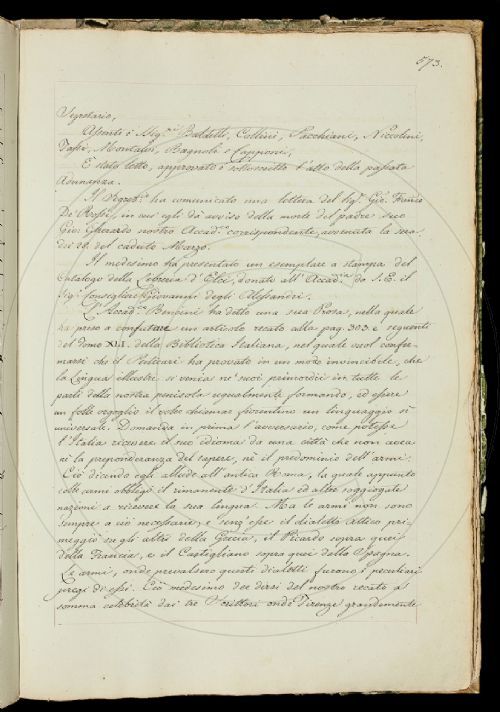 573.
Segretario,
Assenti i Sig.ri Baldelli, Collini, Pacchiani, Niccolini,
Tassi, Montalvi, Bagnoli e Capponi,
È stato letto, approvato e sottoscritto l'atto della passata
Adunanza.
Il Segret.o ha comunicato una lettera del Sig. Gio. Franco
De Rossi, in cui egli dà avviso della morte del padre suo
Gio: Gherardo nostro Accad.o corrispondente, avvenuta la sera
dei 28. del caduto Marzo.
Il medesimo ha presentato un esemplare a stampa del
Catalogo della Libreria d'Elci, donato all'Accad.ia da S. E. il
Sig. Consigliere Giovanni degli Alessandri.
L'Accad.o Bencini ha detto una sua Prosa, nella quale
ha preso a confutare un articolo recato alla pag. 303 e seguenti
del tomo XLI. della Biblioteca Italiana, nel quale vuol confer-
marsi che il Perticari ha provato in un modo invincibile, che
la Lingua illustre si venia ne' suoi primordii in tutte le
parti della nostra penisola ugualmente formando, ed essere
un folle orgoglio il voler chiamar fiorentino un linguaggio sì
universale. Domanda in prima l'avversario, come potesse
l'Italia ricevere il suo idioma da una città che non avea
nè la preponderanza del sapere, nè il predominio dell'armi.
Ciò dicendo egli allude all'antica Roma, la quale appunto
colle armi obbligò il rimanente d'Italia ed altre soggiogate
nazioni a ricevere la sua lingua. Ma le armi non sono
sempre a ciò necessarie, e senz'esse il dialetto attico pri-
meggiò su gli altri della Grecia, il Picardo sopra quei
della Francia, e il Castigliano sopra quei della Spagna.
Le armi, onde prevalsero questi dialetti furono i peculiari
pregi di essi. Ciò medesimo dee dirsi del nostro recato a
somma celebrità dai tre Scrittori onde Firenze grandemente